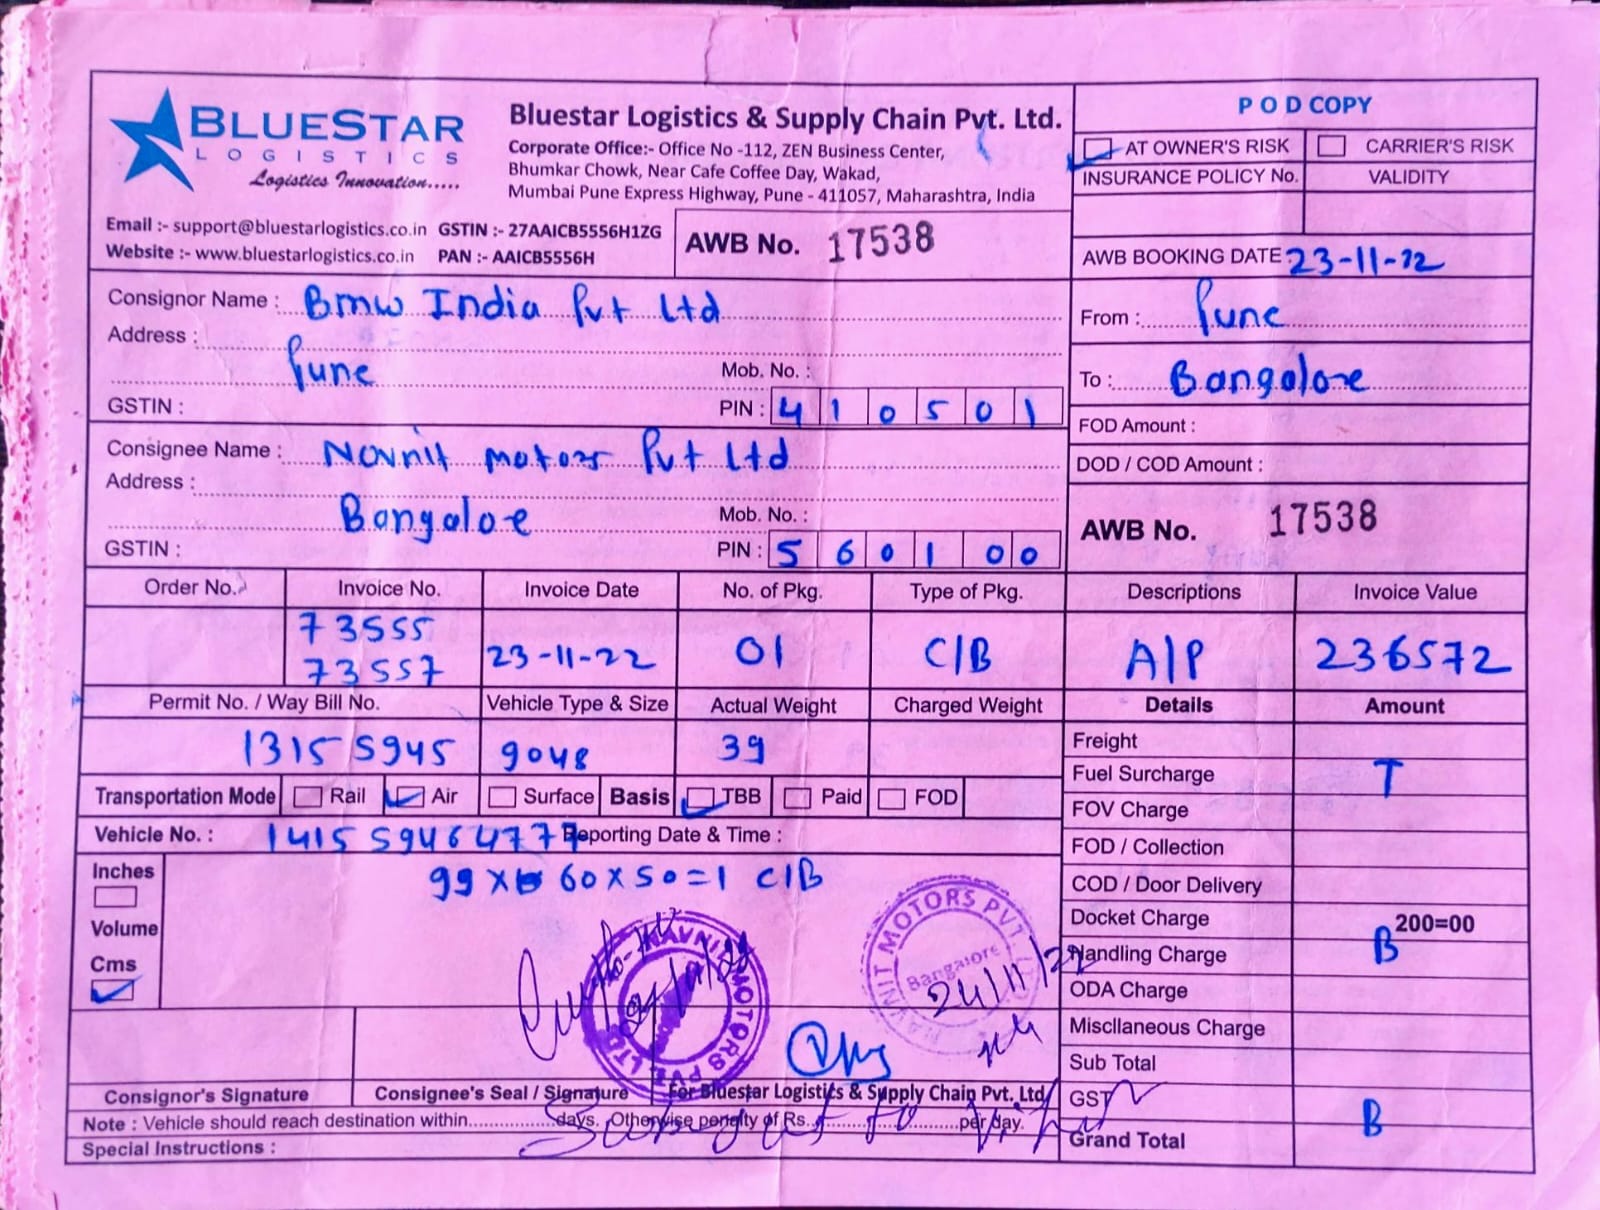 BLUESTAR
LOGISTICS
Logistics Innovation.....
Bluestar Logistics & Supply Chain Pvt. Ltd.
Corporate Office:- Office No -112, ZEN Business Center,
Bhumkar Chowk, Near Cafe Coffee Day, Wakad,
Mumbai Pune Express Highway, Pune - 411057, Maharashtra, India
Email :- support@bluestarlogistics.co.in GSTIN :- 27AAICB5556H1ZG
Website :- www.bluestarlogistics.co.in PAN :- AAICB5556H
AWB No. 17538
P O D COPY
AT OWNER'S RISK CARRIER'S RISK
INSURANCE POLICY No. VALIDITY
AWB BOOKING DATE 23-11-22
Consignor Name : Bmw India Pvt Ltd
Address :
Pune Mob. No. :
GSTIN : PIN : 410501
From : Pune
To : Bangalore
FOD Amount :
DOD / COD Amount :
Consignee Name : Navnit motors Pvt Ltd
Address :
Bangaloe Mob. No. :
GSTIN : PIN : 560100
AWB No. 17538
Order No. Invoice No. Invoice Date No. of Pkg. Type of Pkg. Descriptions Invoice Value
73555
73557 23-11-22 01 C/B A/P 236572
Permit No. / Way Bill No. Vehicle Type & Size Actual Weight Charged Weight Details Amount
1315 5945 9048 39
Transportation Mode Rail Air Surface Basis TBB Paid FOD
Vehicle No. : 1415 5946 4777 Reporting Date & Time :
Inches
Volume
Cms
99 x 60 x 50 = 1 C/B
Freight
Fuel Surcharge T
FOV Charge
FOD / Collection
COD / Door Delivery
Docket Charge 200=00
Handling Charge B
ODA Charge
Miscllaneous Charge
Sub Total
GST
Grand Total B
NAVNIT MOTORS PVT LTD
NAVNIT MOTORS PVT. LTD
Bangalore
24/11/22
Consignor's Signature Consignee's Seal / Signature For Bluestar Logistics & Supply Chain Pvt. Ltd
Note : Vehicle should reach destination within..................days. Otherwise penalty of Rs..............................per day.
Subject to
Special Instructions :